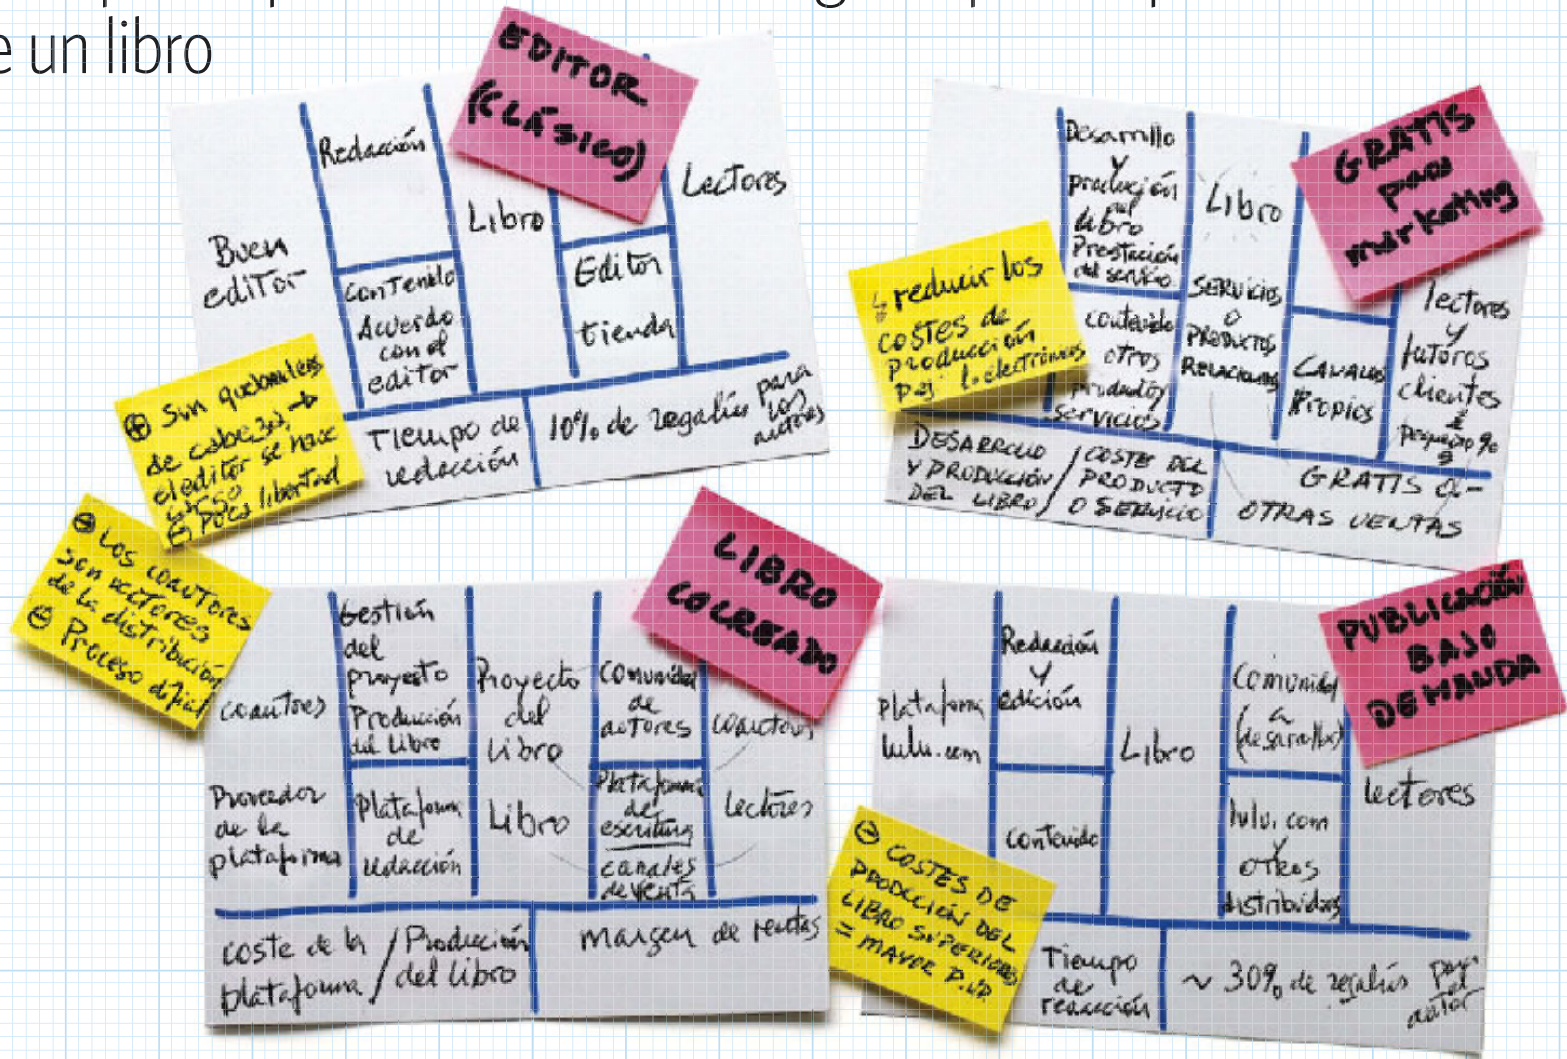 e un libro
EDITOR
(CLÁSICO)
Buen
editor
Redacción
Contenido
Acuerdo
con el
editor
Libro
Editor
tienda
Lectores
Tiempo de
redacción
10% de regalías para
los
autores
⊕ Sin quebraderos
de cabeza →
el editor se hace
⊖ Poca libertad
GRATIS
para
marketing
Desarrollo
y
producción
del
libro
Prestación
del servicio
contenido
otros
productos
servicios
Libro
SERVICIOS
O
PRODUCTOS
RELACIONADOS
CANALES
PROPIOS
lectores
y
futuros
clientes
pequeño %
DESARROLLO
Y PRODUCCIÓN
DEL LIBRO /
COSTE DEL
PRODUCTO
O SERVICIO
GRATIS
OTRAS VENTAS
↳ reducir los
costes de
producción
p.ej. l. electrónicos
LIBRO
COCREADO
coautores
Proveedor
de la
plataforma
Gestión
del
proyecto
Producción
del libro
Plataforma
de
redacción
Proyecto
del
libro
Libro
Comunidad
de
autores
Plataforma
de
escritura
canales
de venta
coautores
lectores
coste de la
plataforma /
Producción
del libro
margen de
⊖ Los coautores
son
de la distribución
⊖ Proceso difícil
PUBLICACIÓN
BAJO
DEMANDA
Plataforma
lulu.com
Redacción
y
edición
contenido
Libro
Comunidad
(a
desarrollar)
lulu.com
y
otros
distribuidores
lectores
Tiempo
de
~ 30% de regalías para
el
autor
⊖ COSTES DE
PRODUCCIÓN DEL
LIBRO SUPERIORES
= MAYOR P.V.P.